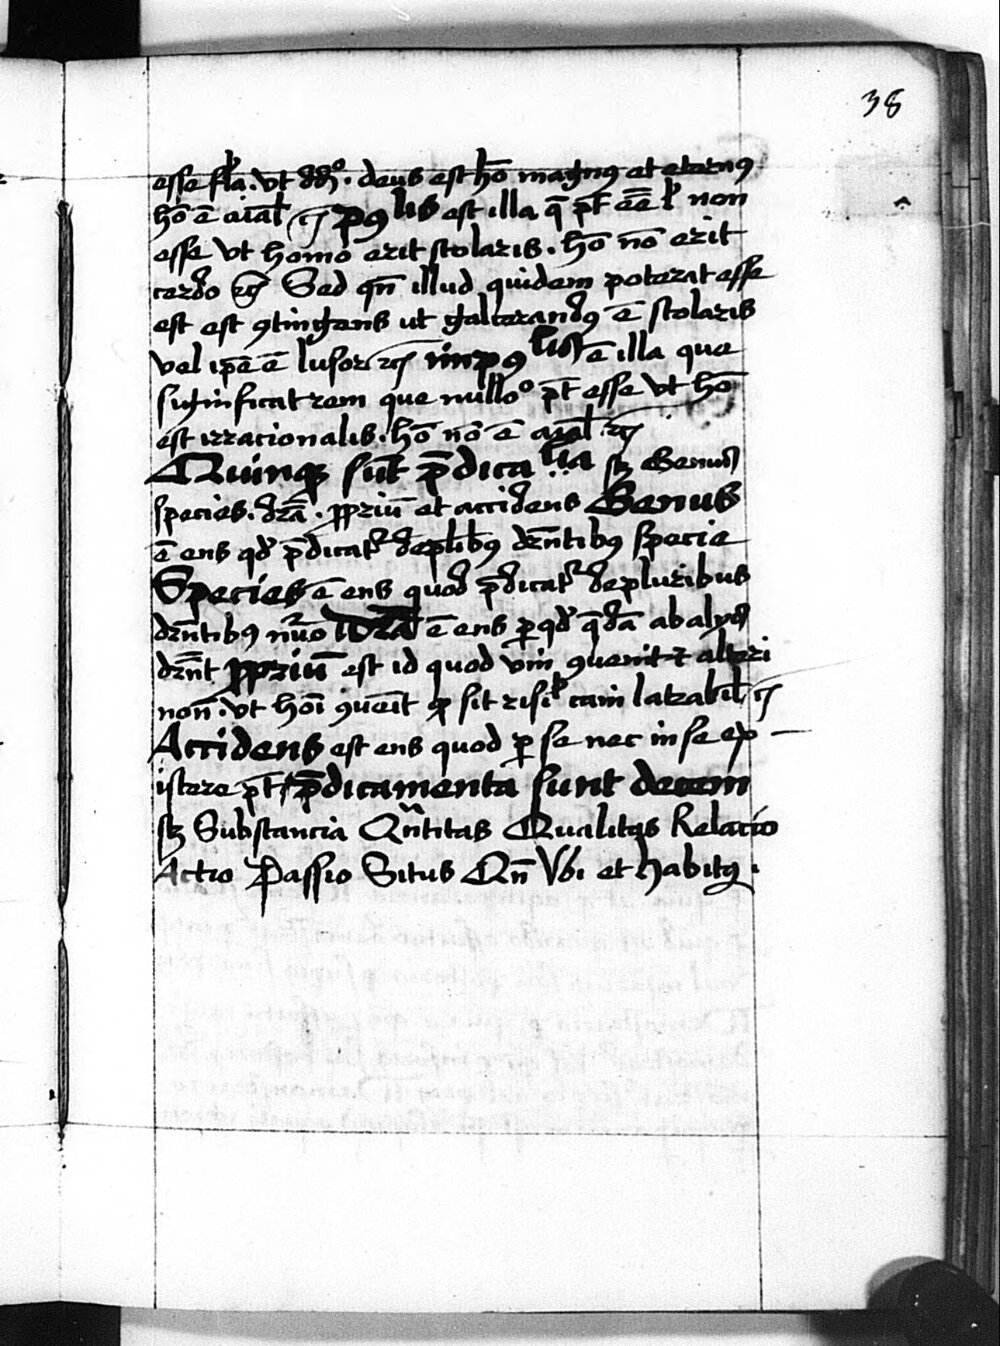 38
esse fła. vt dd̄º. deus est hō magnꝰ et eternꝰ
hō ē aīał ꝛc̄ pꝰlis est illa q̄ pt̄ ēē ł non
esse vt homo erit scolaris. hō nō erit
cerdo ꝛc̄ Sed qn̄ illud quidem poterat esse
est est ꝯtingens ut galterandꝰ ē scolaris
vel ip̄e ē lusor ꝛc̄ īnpꝰlis ē illa que
significat rem que nulloº pt̄ esse vt hō
est irracionalis. hō nō ē aīał ꝛc̄
Quinqꝫ sūt p̄dicalia sꝫ Genus
species. dr̄a. ꝓpriū et accidens Genus
ē ens qd̓ p̄dicatʳ de pl̄ibꝰ dr̄ntibꝰ specie
Species ē ens quod p̄dicatʳ de pluribus
dr̄ntibꝰ nūo Dr̄a ē ens ꝑ qd̓ q̄dā ab alijs
dr̄nt ꝓpriū est id quod vni ꝯuenit ⁊ alteri
non. vt hoī ꝯueīt ꝙ sit risił cani latrabił ꝛc̄
Accidens est ens quod ꝑ se nec in se ep
istere pt̄ p̄dicamenta sunt decem
sꝫ Substancia Qn̄titas Qualitas Relacio
Actio Passio Situs Qn̄ Vbi et habitꝰ.